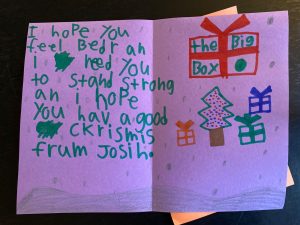 I hope you
feel Bedr an
i need you
to stand strong
an i hope
you hav a good
ckrismis
frum Josih.
the Big
Box